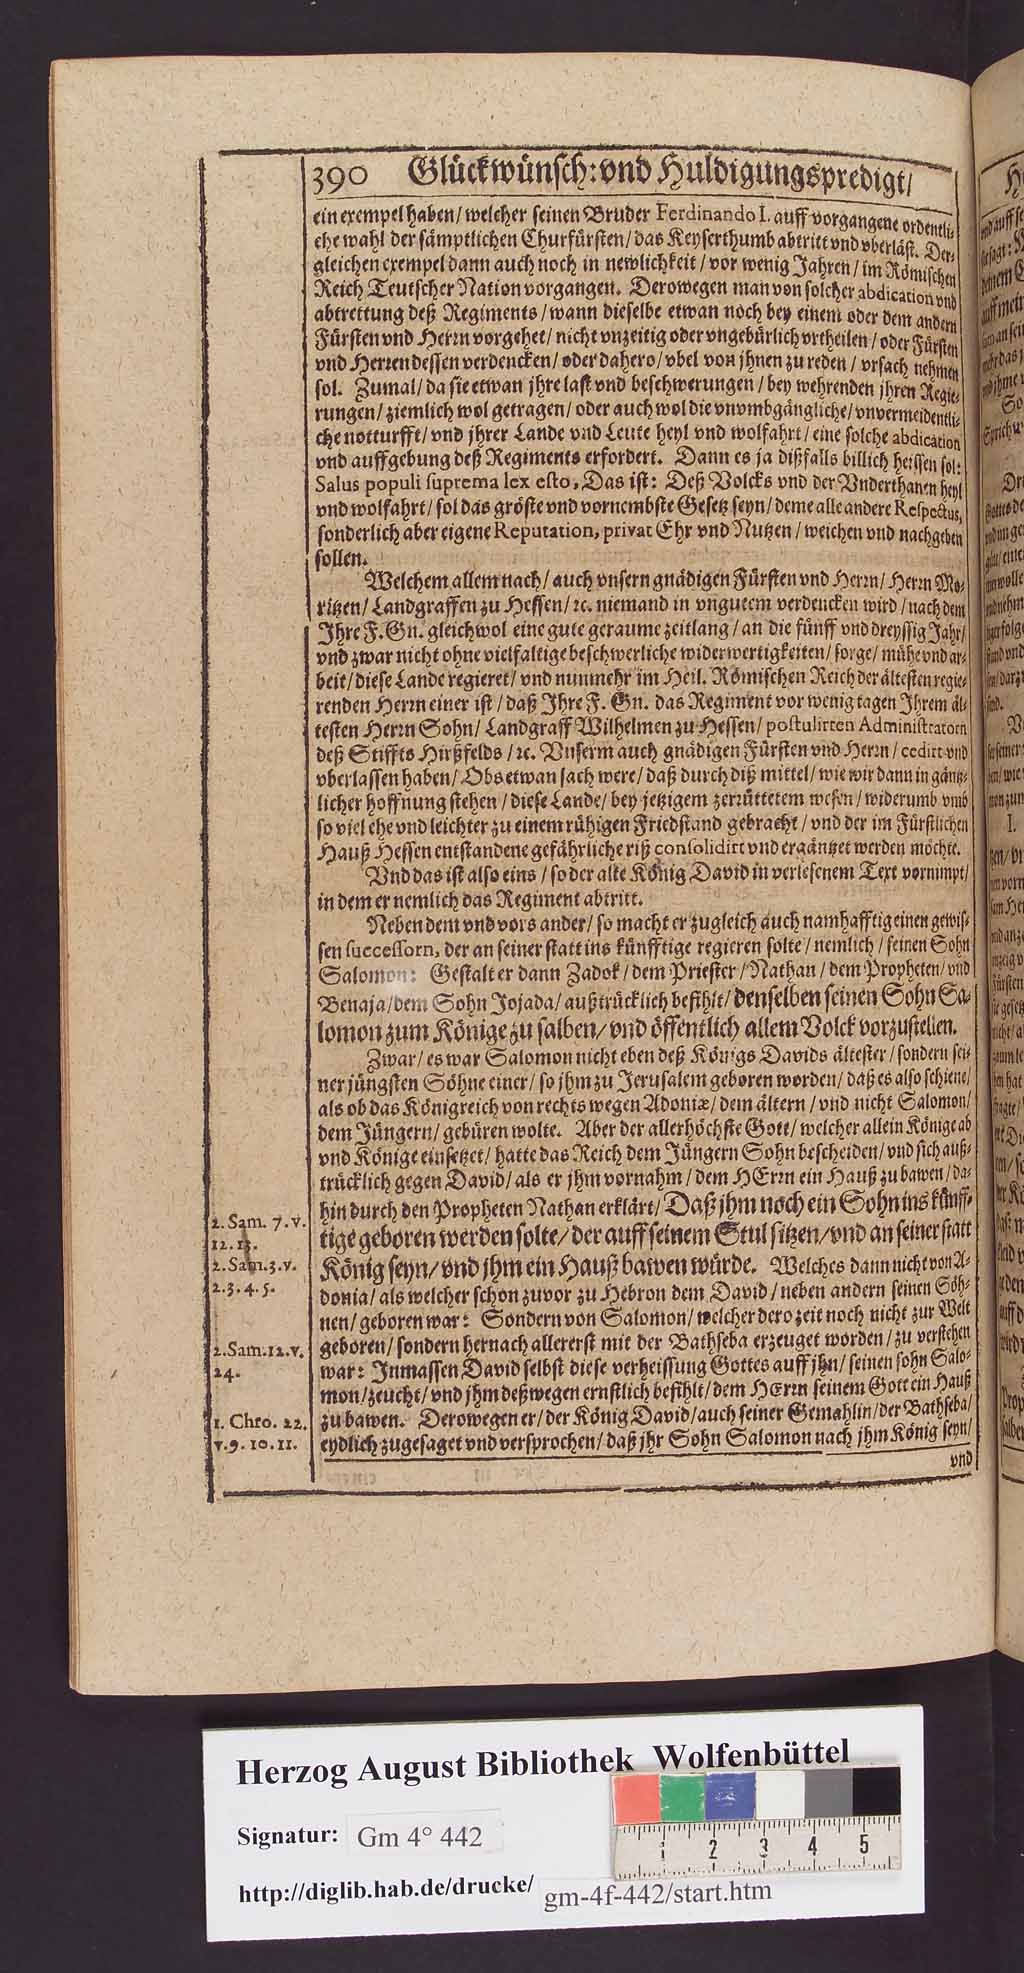 390 Glückwünsch: vnd Huldigungspredigt/
ein exempel haben/ welcher seinen Bruder Ferdinando I. auff vorgangene ordentli-
che wahl der sämptlichen Churfürsten/ das Keyserthumb abtritt vnd vberläst. Der-
gleichen exempel dann auch noch in newlichkeit/ vor wenig Jahren/ im Römischen
Reich Teutscher Nation vorgangen. Derowegen man von solcher abdication vnd
abtrettung deß Regiments/ wann dieselbe etwan noch bey einem oder dem andern
Fürsten vnd Herrn vorgehet/ nicht vnzeitig oder vngebürlich vrtheilen/ oder Fürsten
vnd Herren dessen verdencken/ oder dahero/ vbel von jhnen zu reden/ vrsach nehmen
sol. Zumal/ da sie etwan jhre last vnd beschwerungen/ bey wehrenden jhren Regie-
rungen/ ziemlich wol getragen/ oder auch wol die vnvmbgängliche/ vnvermeidentli-
che notturfft/ vnd jhrer Lande vnd Leute heyl vnd wolfahrt/ eine solche abdication
vnd auffgebung deß Regiments erfordert. Dann es ja dißfalls billich heissen sol:
Salus populi suprema lex esto, Das ist: Deß Volcks vnd der Vnderthanen heyl
vnd wolfahrt/ sol das gröste vnd vornembste Gesetz seyn/ deme alle andere Respectus,
sonderlich aber eigene Reputation, privat Ehr vnd Nutzen/ weichen vnd nachgeben
sollen.
Welchem allem nach/ auch vnsern gnädigen Fürsten vnd Herrn/ Herrn Mo-
ritzen/ Landgraffen zu Hessen/ ꝛc. niemand in vngutem verdencken wird/ nach dem
Ihre F. Gn. gleichwol eine gute geraume zeitlang/ an die fünff vnd dreyssig Jahr/
vnd zwar nicht ohne vielfaltige beschwerliche widerwertigkeiten/ sorge/ mühe vnd ar-
beit/ diese Lande regieret/ vnd nunmehr im Heil. Römischen Reich der ältesten regie-
renden Herrn einer ist/ daß Ihre F. Gn. das Regiment vor wenig tagen Ihrem äl-
testen Herrn Sohn/ Landgraff Wilhelmen zu Hessen/ postulirten Administratorn
deß Stiffts Hirßfelds/ ꝛc. Vnserm auch gnädigen Fürsten vnd Herrn/ cedirt vnd
vberlassen haben/ Obs etwan sach were/ daß durch diß mittel/ wie wir dann in gäntz-
licher hoffnung stehen/ diese Lande/ bey jetzigem zerrüttetem wesen/ widerumb vmb
so viel ehe vnd leichter zu einem rühigen Friedstand gebracht/ vnd der im Fürstlichen
Hauß Hessen entstandene gefährliche riß consolidirt vnd ergäntzet werden möchte.
Vnd das ist also eins/ so der alte König David in verlesenem Text vornimpt/
in dem er nemlich das Regiment abtritt.
Neben dem vnd vors ander/ so macht er zugleich auch namhafftig einen gewis-
sen successorn, der an seiner statt ins künfftige regieren solte/ nemlich/ seinen Sohn
Salomon: Gestalt er dann Zadok/ dem Priester/ Nathan/ dem Propheten/ vnd
Benaja/ dem Sohn Jojada/ außtrücklich befihlt/ denselben seinen Sohn Sa-
lomon zum Könige zu salben/ vnd öffentlich allem Volck vorzustellen.
Zwar/ es war Salomon nicht eben deß Königs Davids ältester/ sondern sei-
ner jüngsten Söhne einer/ so jhm zu Jerusalem geboren worden/ daß es also schiene/
als ob das Königreich von rechts wegen Adoniæ/ dem ältern/ vnd nicht Salomon/
dem Jüngern/ gebüren wolte. Aber der allerhöchste Gott/ welcher allein Könige ab
vnd Könige einsetzet/ hatte das Reich dem Jüngern Sohn bescheiden/ vnd sich auß-
trücklich gegen David/ als er jhm vornahm/ dem HErrn ein Hauß zu bawen/ da-
hin durch den Propheten Nathan erklärt/ Daß jhm noch ein Sohn ins künff-
tige geboren werden solte/ der auff seinem Stul sitzen/ vnd an seiner statt
König seyn/ vnd jhm ein Hauß bawen würde. Welches dann nicht von A-
donia/ als welcher schon zuvor zu Hebron dem David/ neben andern seinen Söh-
nen/ geboren war: Sondern von Salomon/ welcher dero zeit noch nicht zur Welt
geboren/ sondern hernach allererst mit der Bathseba erzeuget worden/ zu verstehen
war: Inmassen David selbst diese verheissung Gottes auff jhn/ seinen sohn Salo-
mon/ zeucht/ vnd jhm deßwegen ernstlich befihlt/ dem HErrn seinem Gott ein Hauß
zu bawen. Derowegen er/ der König David/ auch seiner Gemahlin/ der Bathseba/
eydlich zugesaget vnd versprochen/ daß jhr Sohn Salomon nach jhm König seyn/
vnd
2. Sam. 7. v.
12. 13.
2. Sam. 3. v.
2. 3. 4. 5.
2. Sam. 12. v.
24.
1. Chro. 22.
v. 9. 10. 11.
Herzog August Bibliothek Wolfenbüttel
Signatur: Gm 4° 442
http://diglib.hab.de/drucke/ gm-4f-442/start.htm
1 2 3 4 5